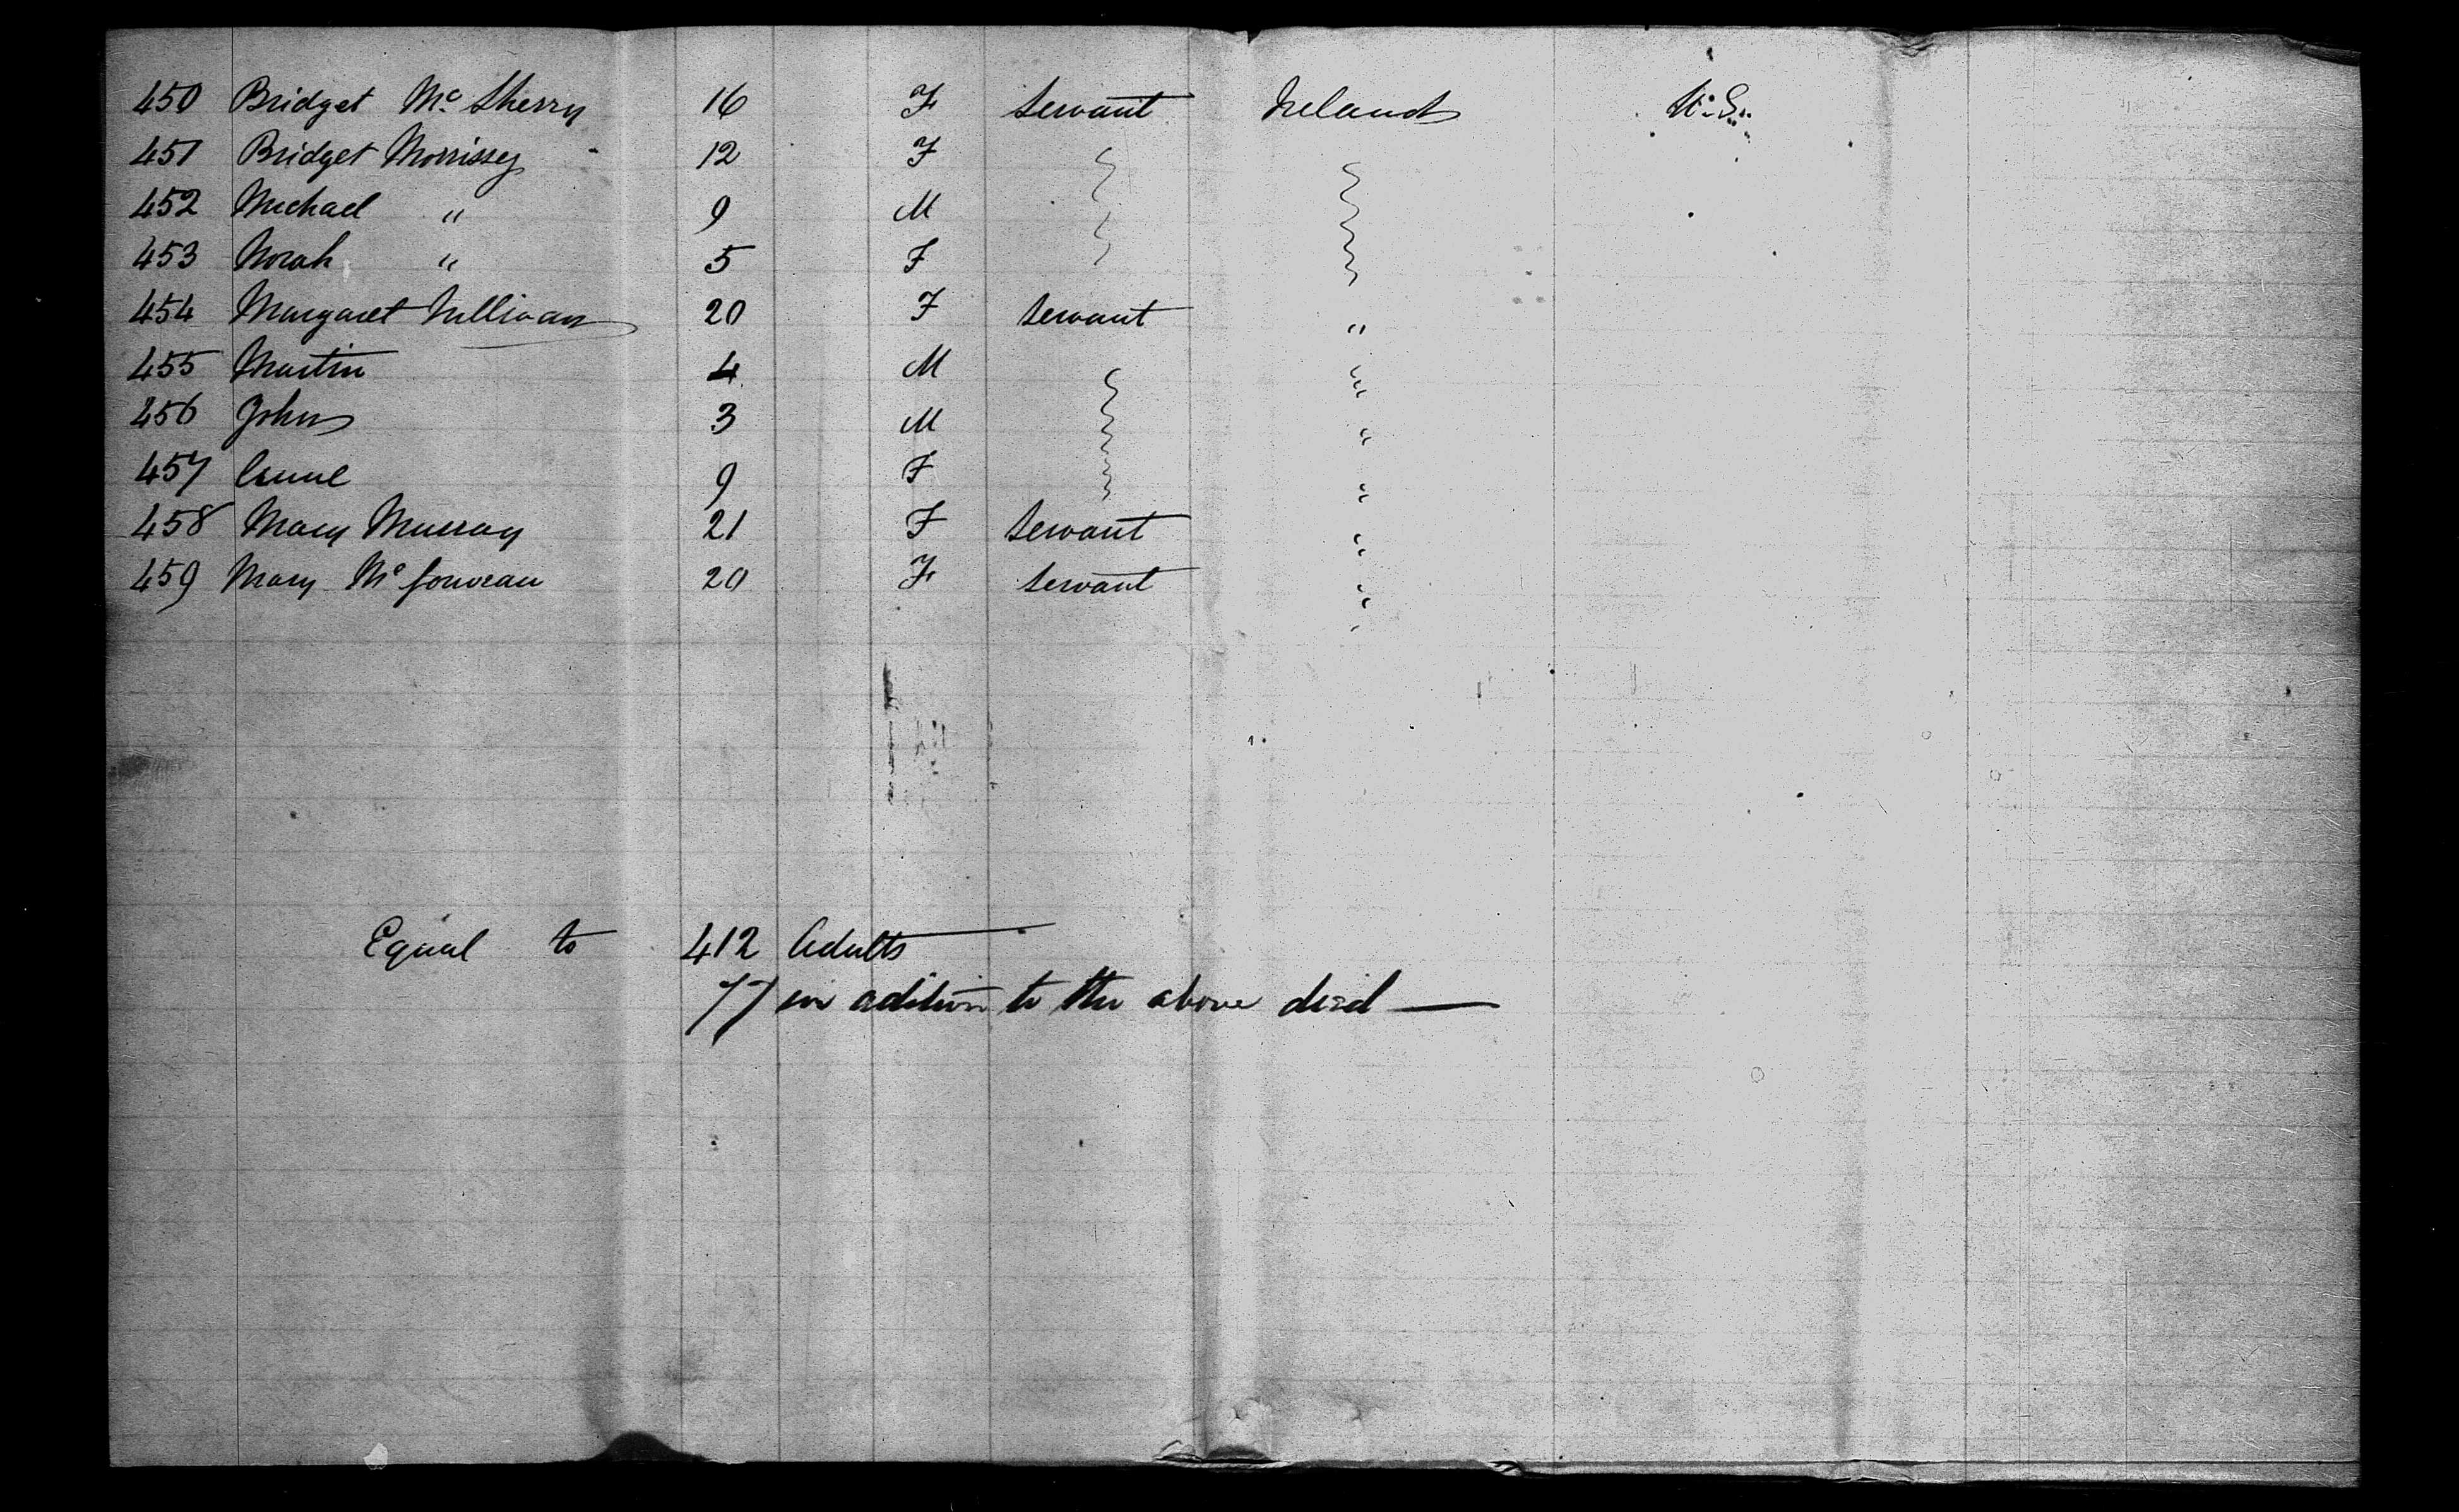 450 Bridget Mc Sherry 16 F Servant Ireland U.S.
451 Bridget Morrissey 12 F
452 Michael " 9 M
453 Norah " 5 F
454 Margaret Sullivan 20 F Servant "
455 Martin 4 M "
456 John 3 M "
457 Anne 9 F "
458 Mary Murray 21 F Servant "
459 Mary Mc 20 F Servant "
Equal to 412 Adults
77 in adition to the above died